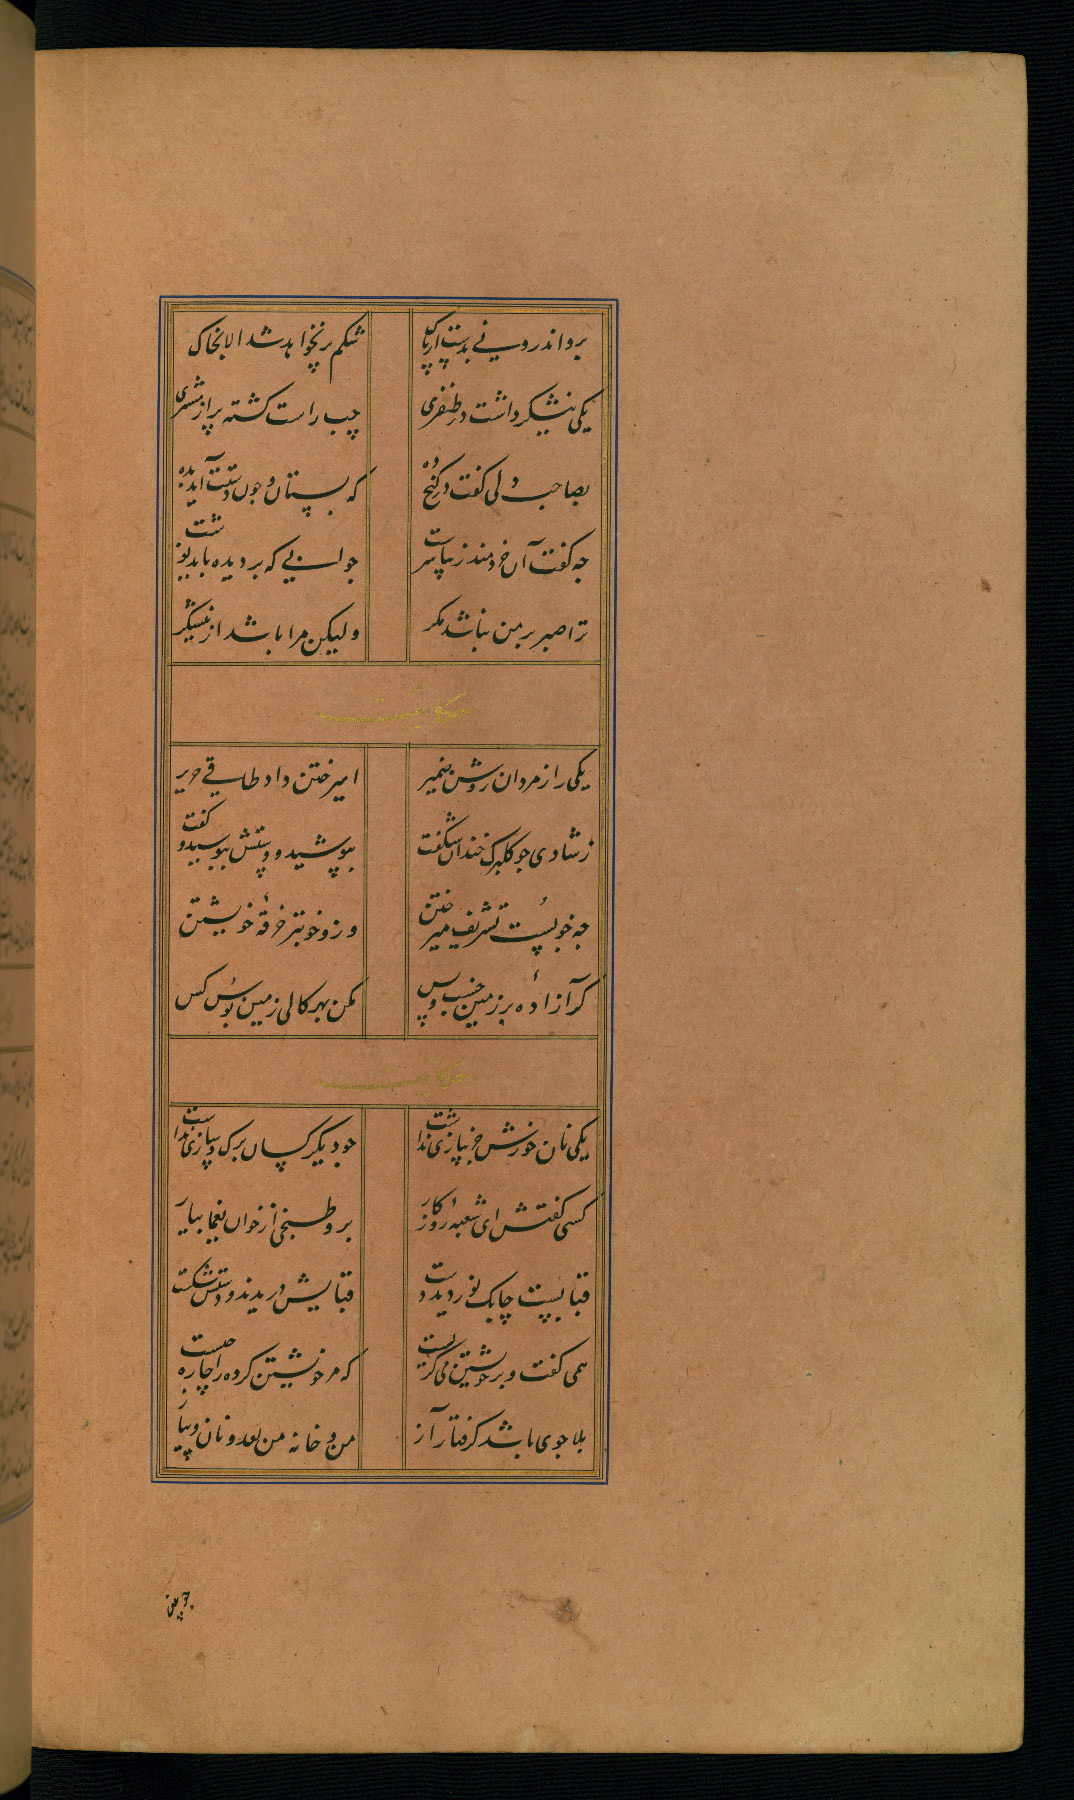 برو اندرونی بدست آر پاک شکم پر نخواهد شد الا بخاک
یکی نیشکر داشت در طیفری چپ راست کشته پر از مشتری
بصاحب دلی کفت در کنج ده که بستان و چون دستت آید بده
چه کفت آن خردمند زیبا سرشت جوابی که بر دیده باید نوشت
ترا صبر بر من نباشد مکر ولیکن مرا باشد از نیشکر
حکایت
یکی را ز مردان روشن ضمیر امیر ختن داد طاقی حریر
ز شادی چو کلبرک خندان شکفت بپوشید و دستش ببوسید و کفت
چه خوبست تشریف میر ختن وزو خوبتر خرقهٔ خویشتن
کر آزادهٔ بر زمین خسب و بس مکن بهر قالی زمین بوس کس
حکایت
یکی نان خورش جز پیازی نداشت چو دیکر کسان برک و سازی نداشت
کسی کفتش ای شغبهٔ روزکار برو طبخی از خوان یغما بیار
قبا بست چابک نوردید دست قبایش دریدند و دستش شکست
همی کفت و بر خویشتن می کریست که مر خویشتن کرده را چاره چیست
بلا جوی باشد کرفتار آز من و خانه من بعد و نان و پیاز